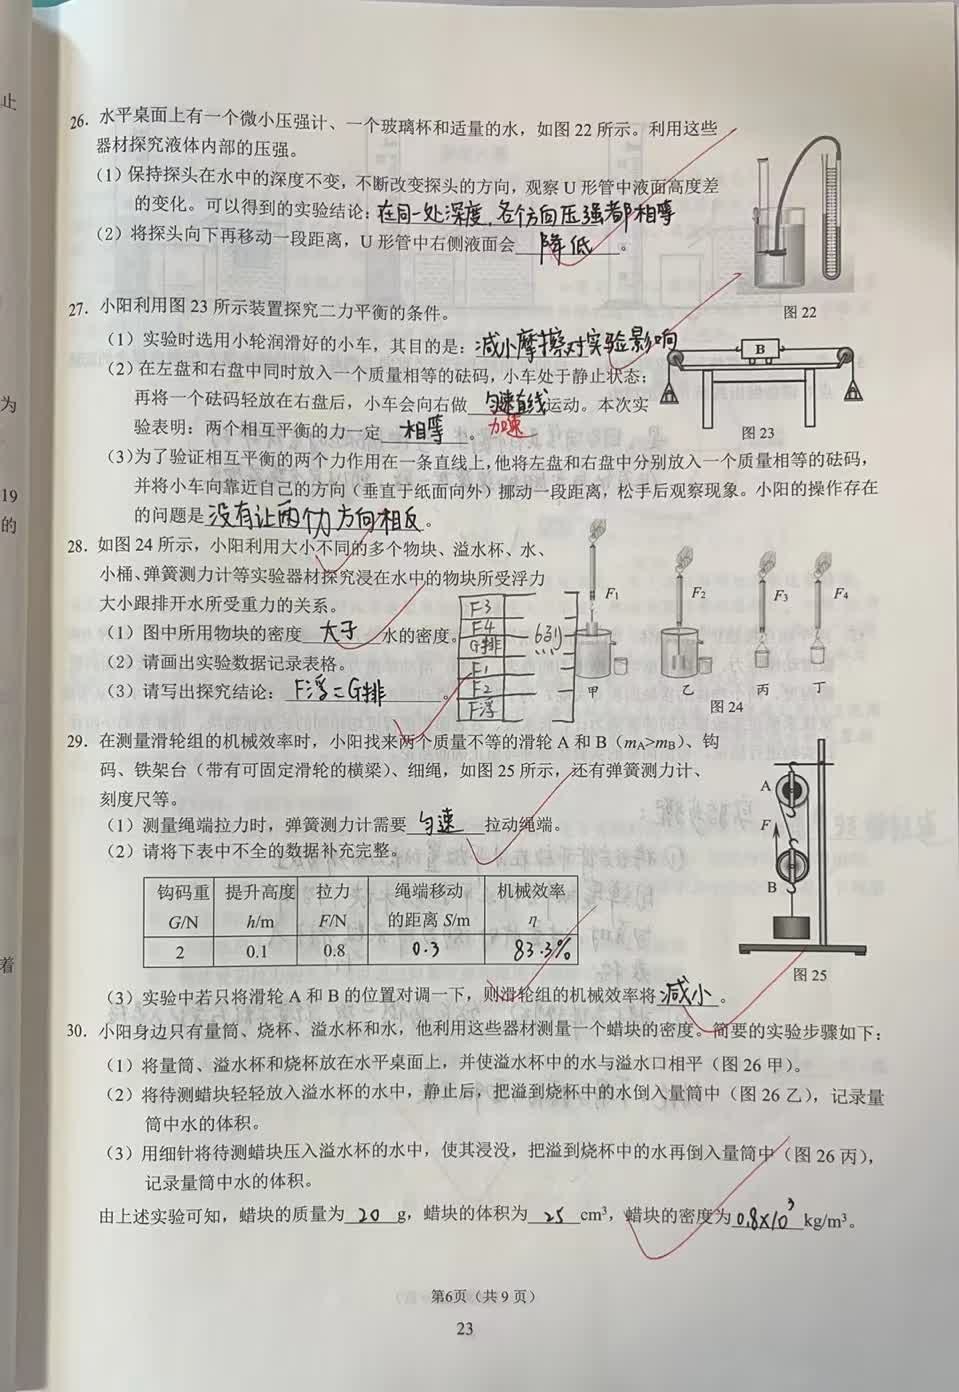 止
为
19
的
着
26. 水平桌面上有一个微小压强计、一个玻璃杯和适量的水，如图 22 所示。利用这些
器材探究液体内部的压强。
（1）保持探头在水中的深度不变，不断改变探头的方向，观察 U 形管中液面高度差
的变化。可以得到的实验结论：在同一处深度，各个方向压强都相等
（2）将探头向下再移动一段距离，U 形管中右侧液面会 降低 。
图 22
27. 小阳利用图 23 所示装置探究二力平衡的条件。
（1）实验时选用小轮润滑好的小车，其目的是：减小摩擦对实验影响
（2）在左盘和右盘中同时放入一个质量相等的砝码，小车处于静止状态；
再将一个砝码轻放在右盘后，小车会向右做 匀速直线 运动。本次实
加速
验表明：两个相互平衡的力一定 相等 。
B
图 23
（3）为了验证相互平衡的两个力作用在一条直线上，他将左盘和右盘中分别放入一个质量相等的砝码，
并将小车向靠近自己的方向（垂直于纸面向外）挪动一段距离，松手后观察现象。小阳的操作存在
的问题是 没有让两个力方向相反 。
28. 如图 24 所示，小阳利用大小不同的多个物块、溢水杯、水、
小桶、弹簧测力计等实验器材探究浸在水中的物块所受浮力
大小跟排开水所受重力的关系。
（1）图中所用物块的密度 大于 水的密度。
（2）请画出实验数据记录表格。
（3）请写出探究结论： F浮=G排 。
F3
F4
G排
F1
F2
F浮
6列
F1 F2 F3 F4
甲 乙 丙 丁
图 24
29. 在测量滑轮组的机械效率时，小阳找来两个质量不等的滑轮 A 和 B（mA>mB）、钩
码、铁架台（带有可固定滑轮的横梁）、细绳，如图 25 所示，还有弹簧测力计、
刻度尺等。
（1）测量绳端拉力时，弹簧测力计需要 匀速 拉动绳端。
（2）请将下表中不全的数据补充完整。
钩码重 提升高度 拉力 绳端移动 机械效率
G/N h/m F/N 的距离 S/m η
2 0.1 0.8 0.3 83.3%
A
F
B
图 25
（3）实验中若只将滑轮 A 和 B 的位置对调一下，则滑轮组的机械效率将 减小 。
30. 小阳身边只有量筒、烧杯、溢水杯和水，他利用这些器材测量一个蜡块的密度。简要的实验步骤如下：
（1）将量筒、溢水杯和烧杯放在水平桌面上，并使溢水杯中的水与溢水口相平（图 26 甲）。
（2）将待测蜡块轻轻放入溢水杯的水中，静止后，把溢到烧杯中的水倒入量筒中（图 26 乙），记录量
筒中水的体积。
（3）用细针将待测蜡块压入溢水杯的水中，使其浸没，把溢到烧杯中的水再倒入量筒中（图 26 丙），
记录量筒中水的体积。
由上述实验可知，蜡块的质量为 20 g，蜡块的体积为 25 cm³，蜡块的密度为 0.8×10³ kg/m³。
第6页（共 9 页）
23